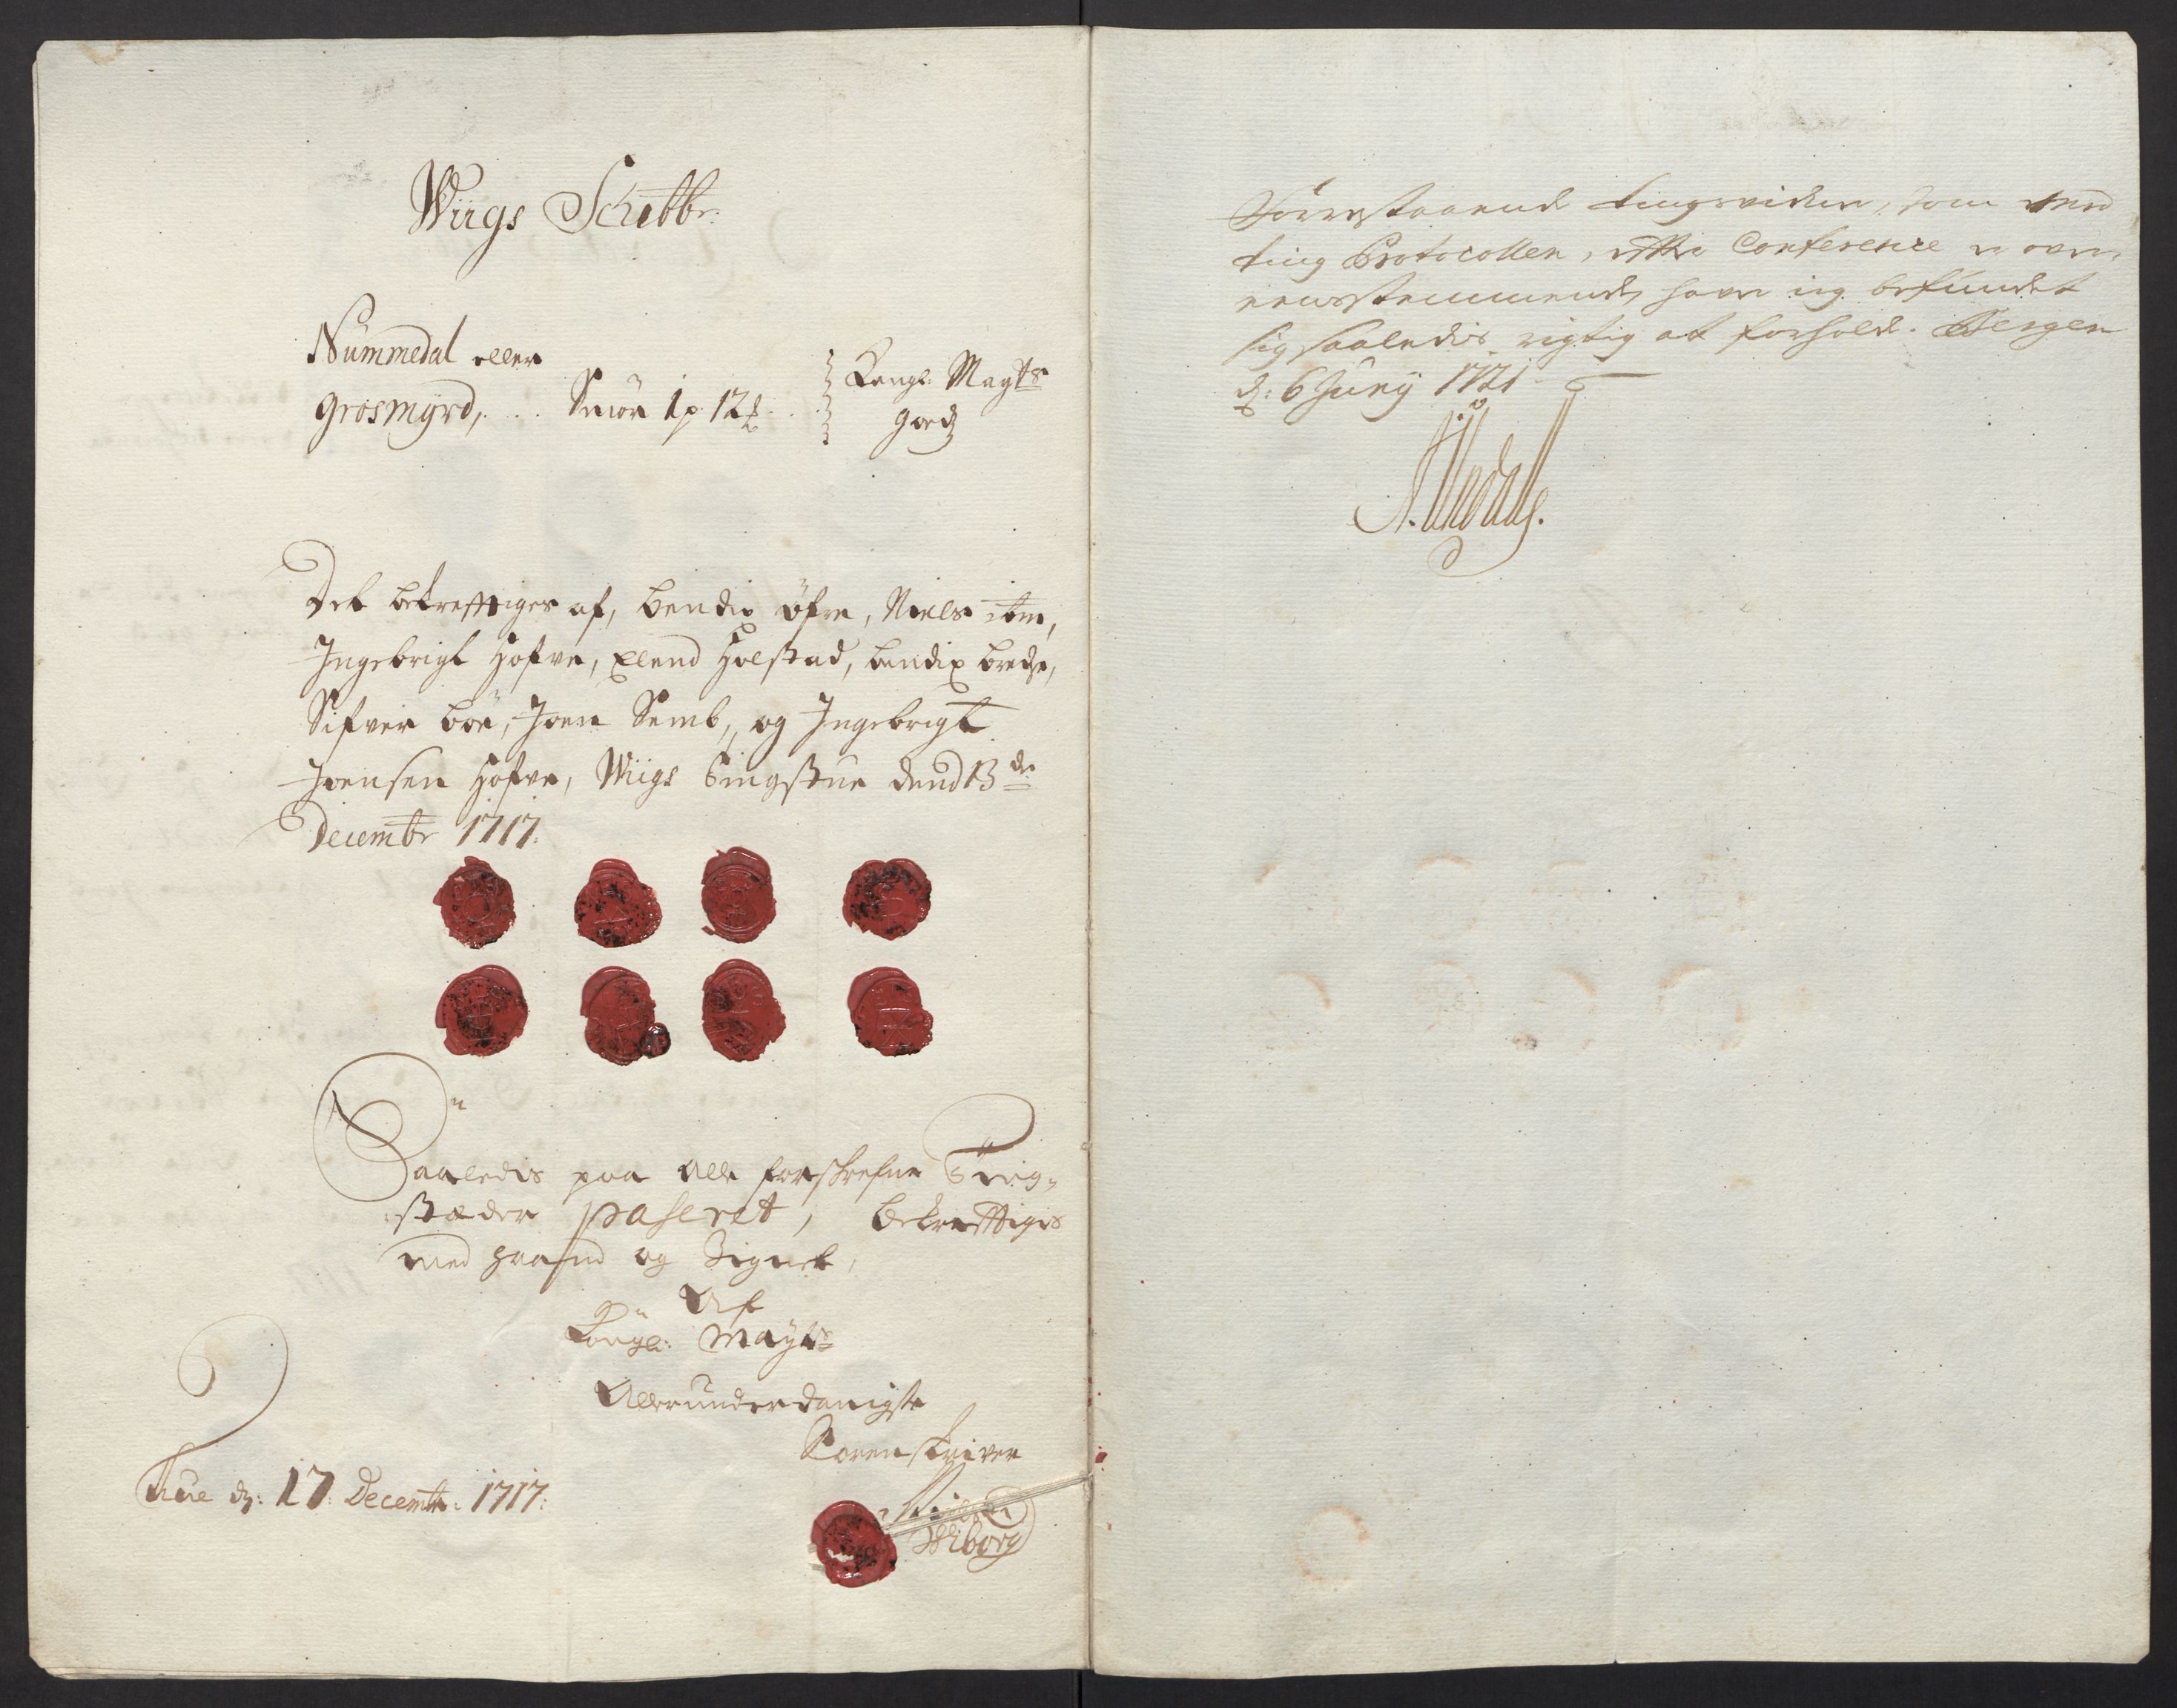 Wiigs Schibbr:
Nummedal eller
Grosmyrd, . . . Smör 1 p 12 . .
Kongl: Mayts
goedz
Det bekrefftiger af, Bendix Öfre, Niels ibm,
Ingebrigt Hofve, Elend Holstad, Bendix Brede,
Sifver Böe, Joen Semb, og Ingebrigt
Joensen Hofve, Wiigs Tingstue dend 13de
Decembr 1717.
Saaledis paa alle forschrefne Ting-
stæder passeret, bekrefftiges
med Haand og Signet,
Af
Kongl: Mayts
Allerunderdanigste
Sorenskriver
Wiborg
d: 17 Decembr: 1717:
Forrestaaende tingsvidne, som med
ting Protocollen, effter Conference er ofver-
eensstemmende, hafver ieg befundet
sig saaledis rigtig at forholde. Bergen
d: 6 Juny 1721